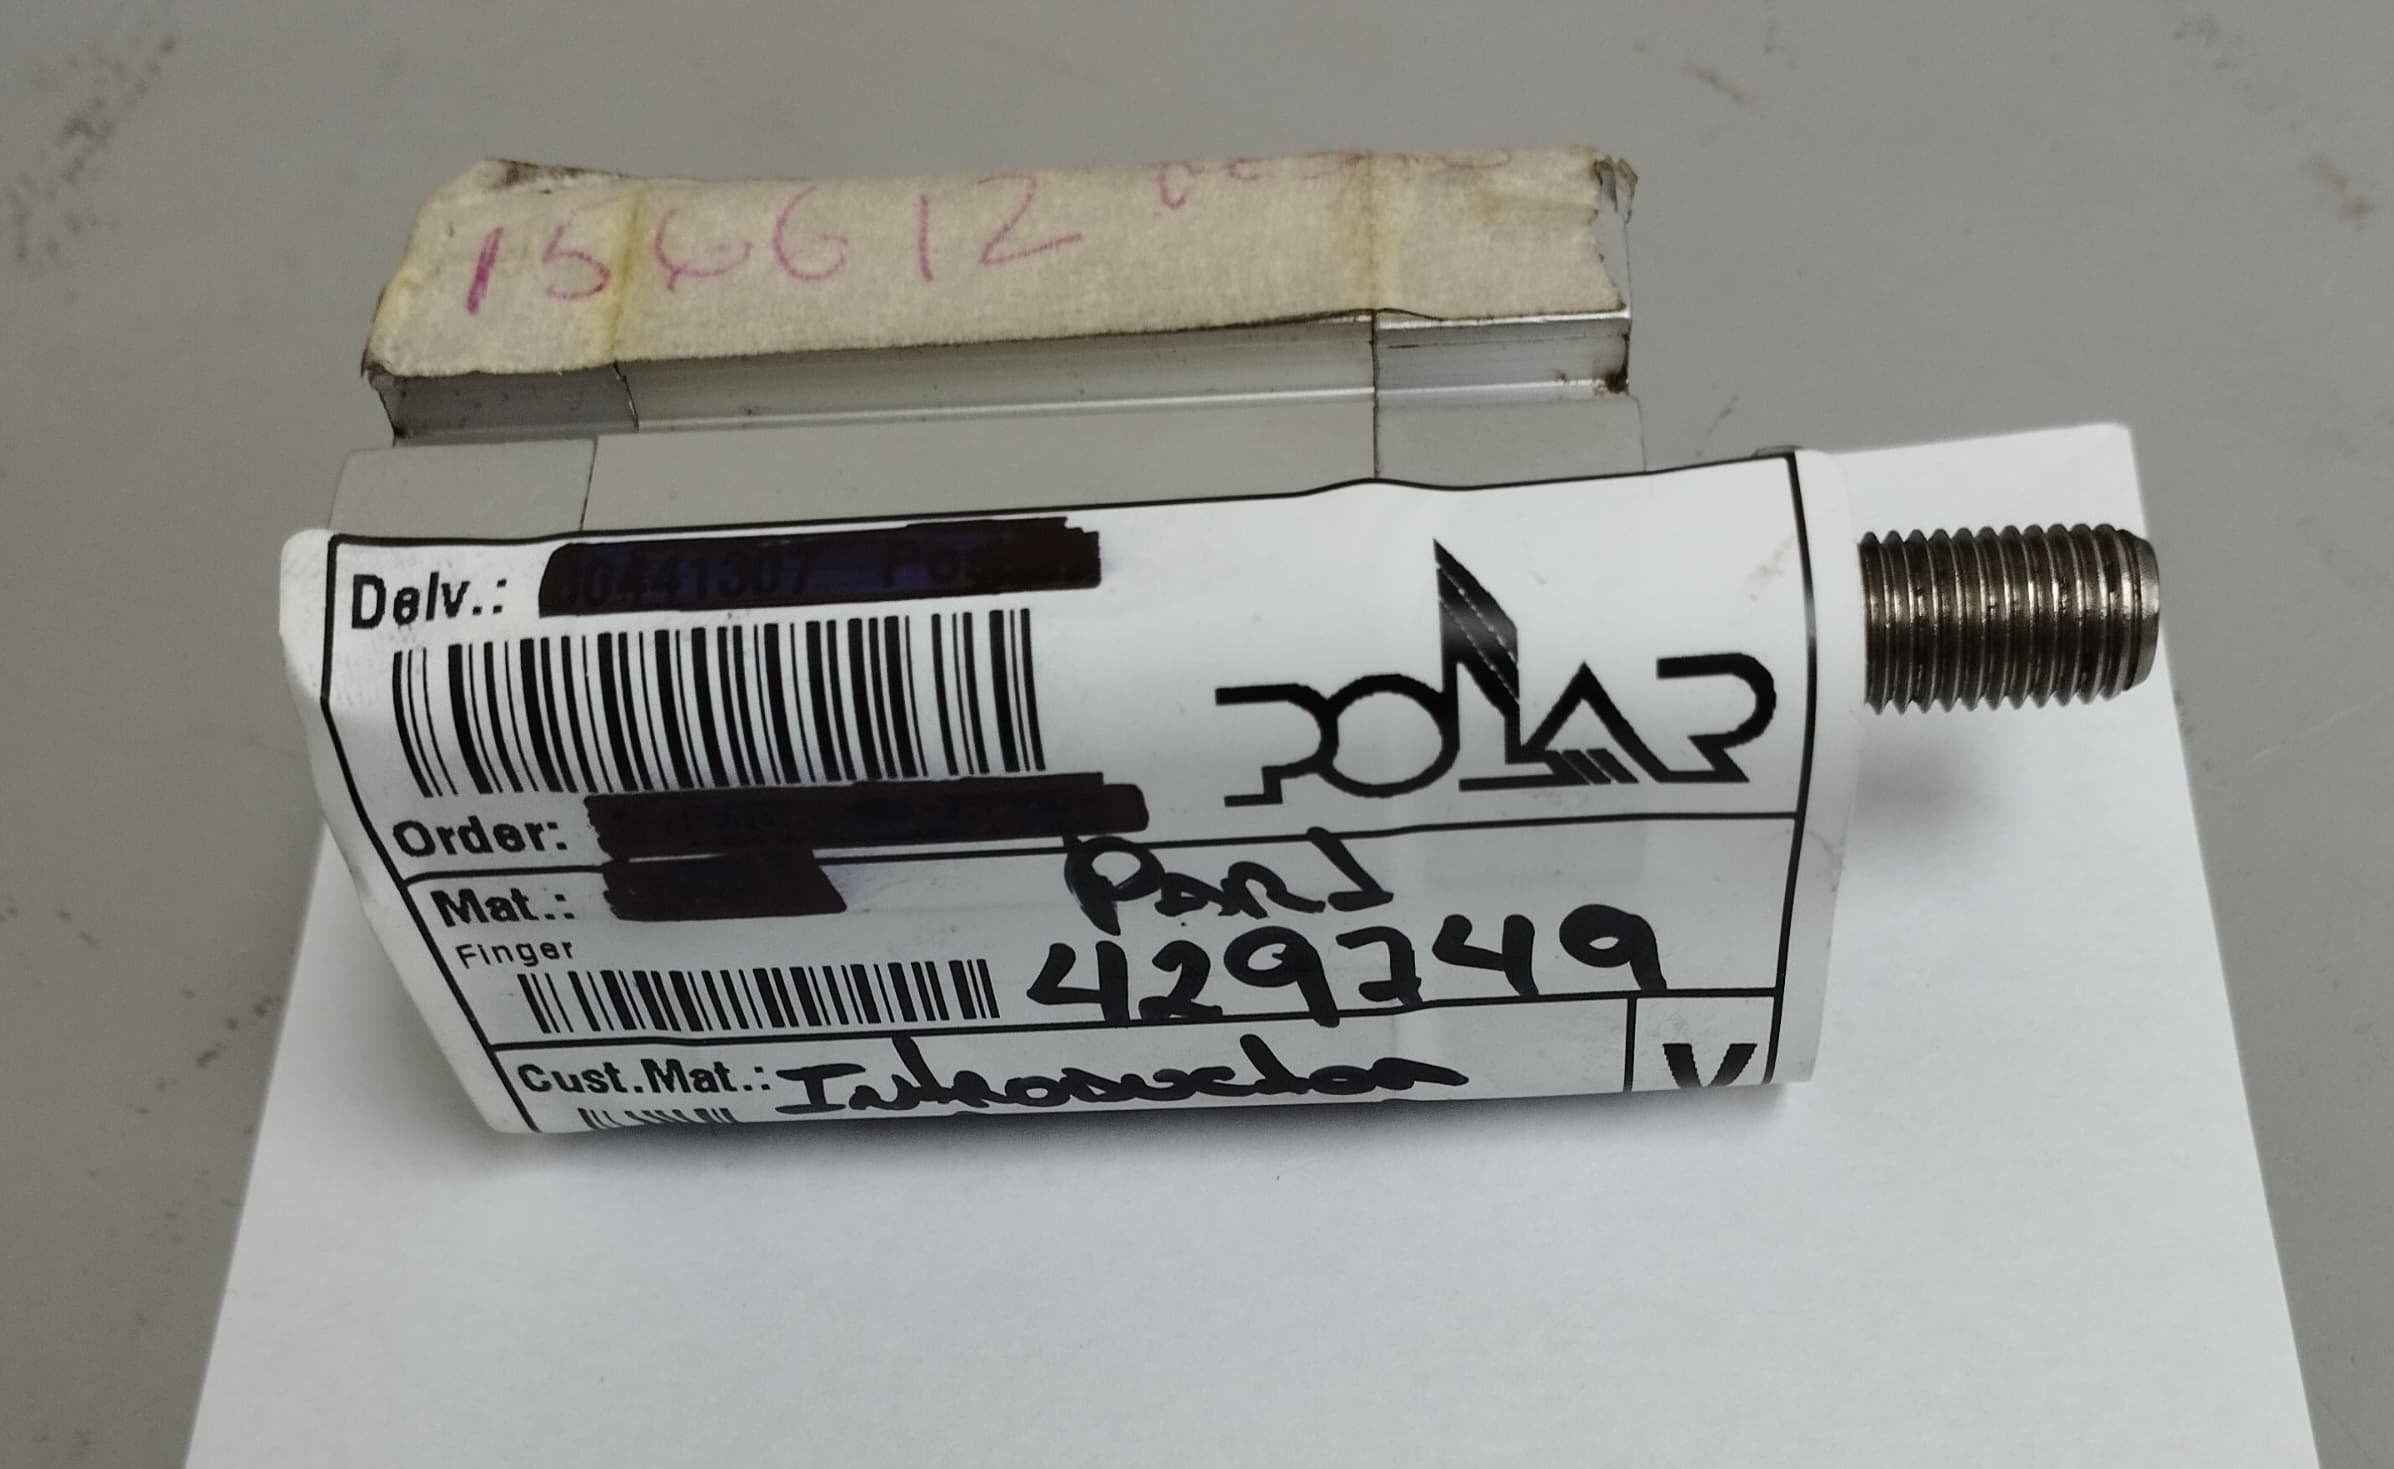 156612
Delv.:
POLAR
Order:
Mat.:
Part
Finger
429749
Cust.Mat.: Introductor
V